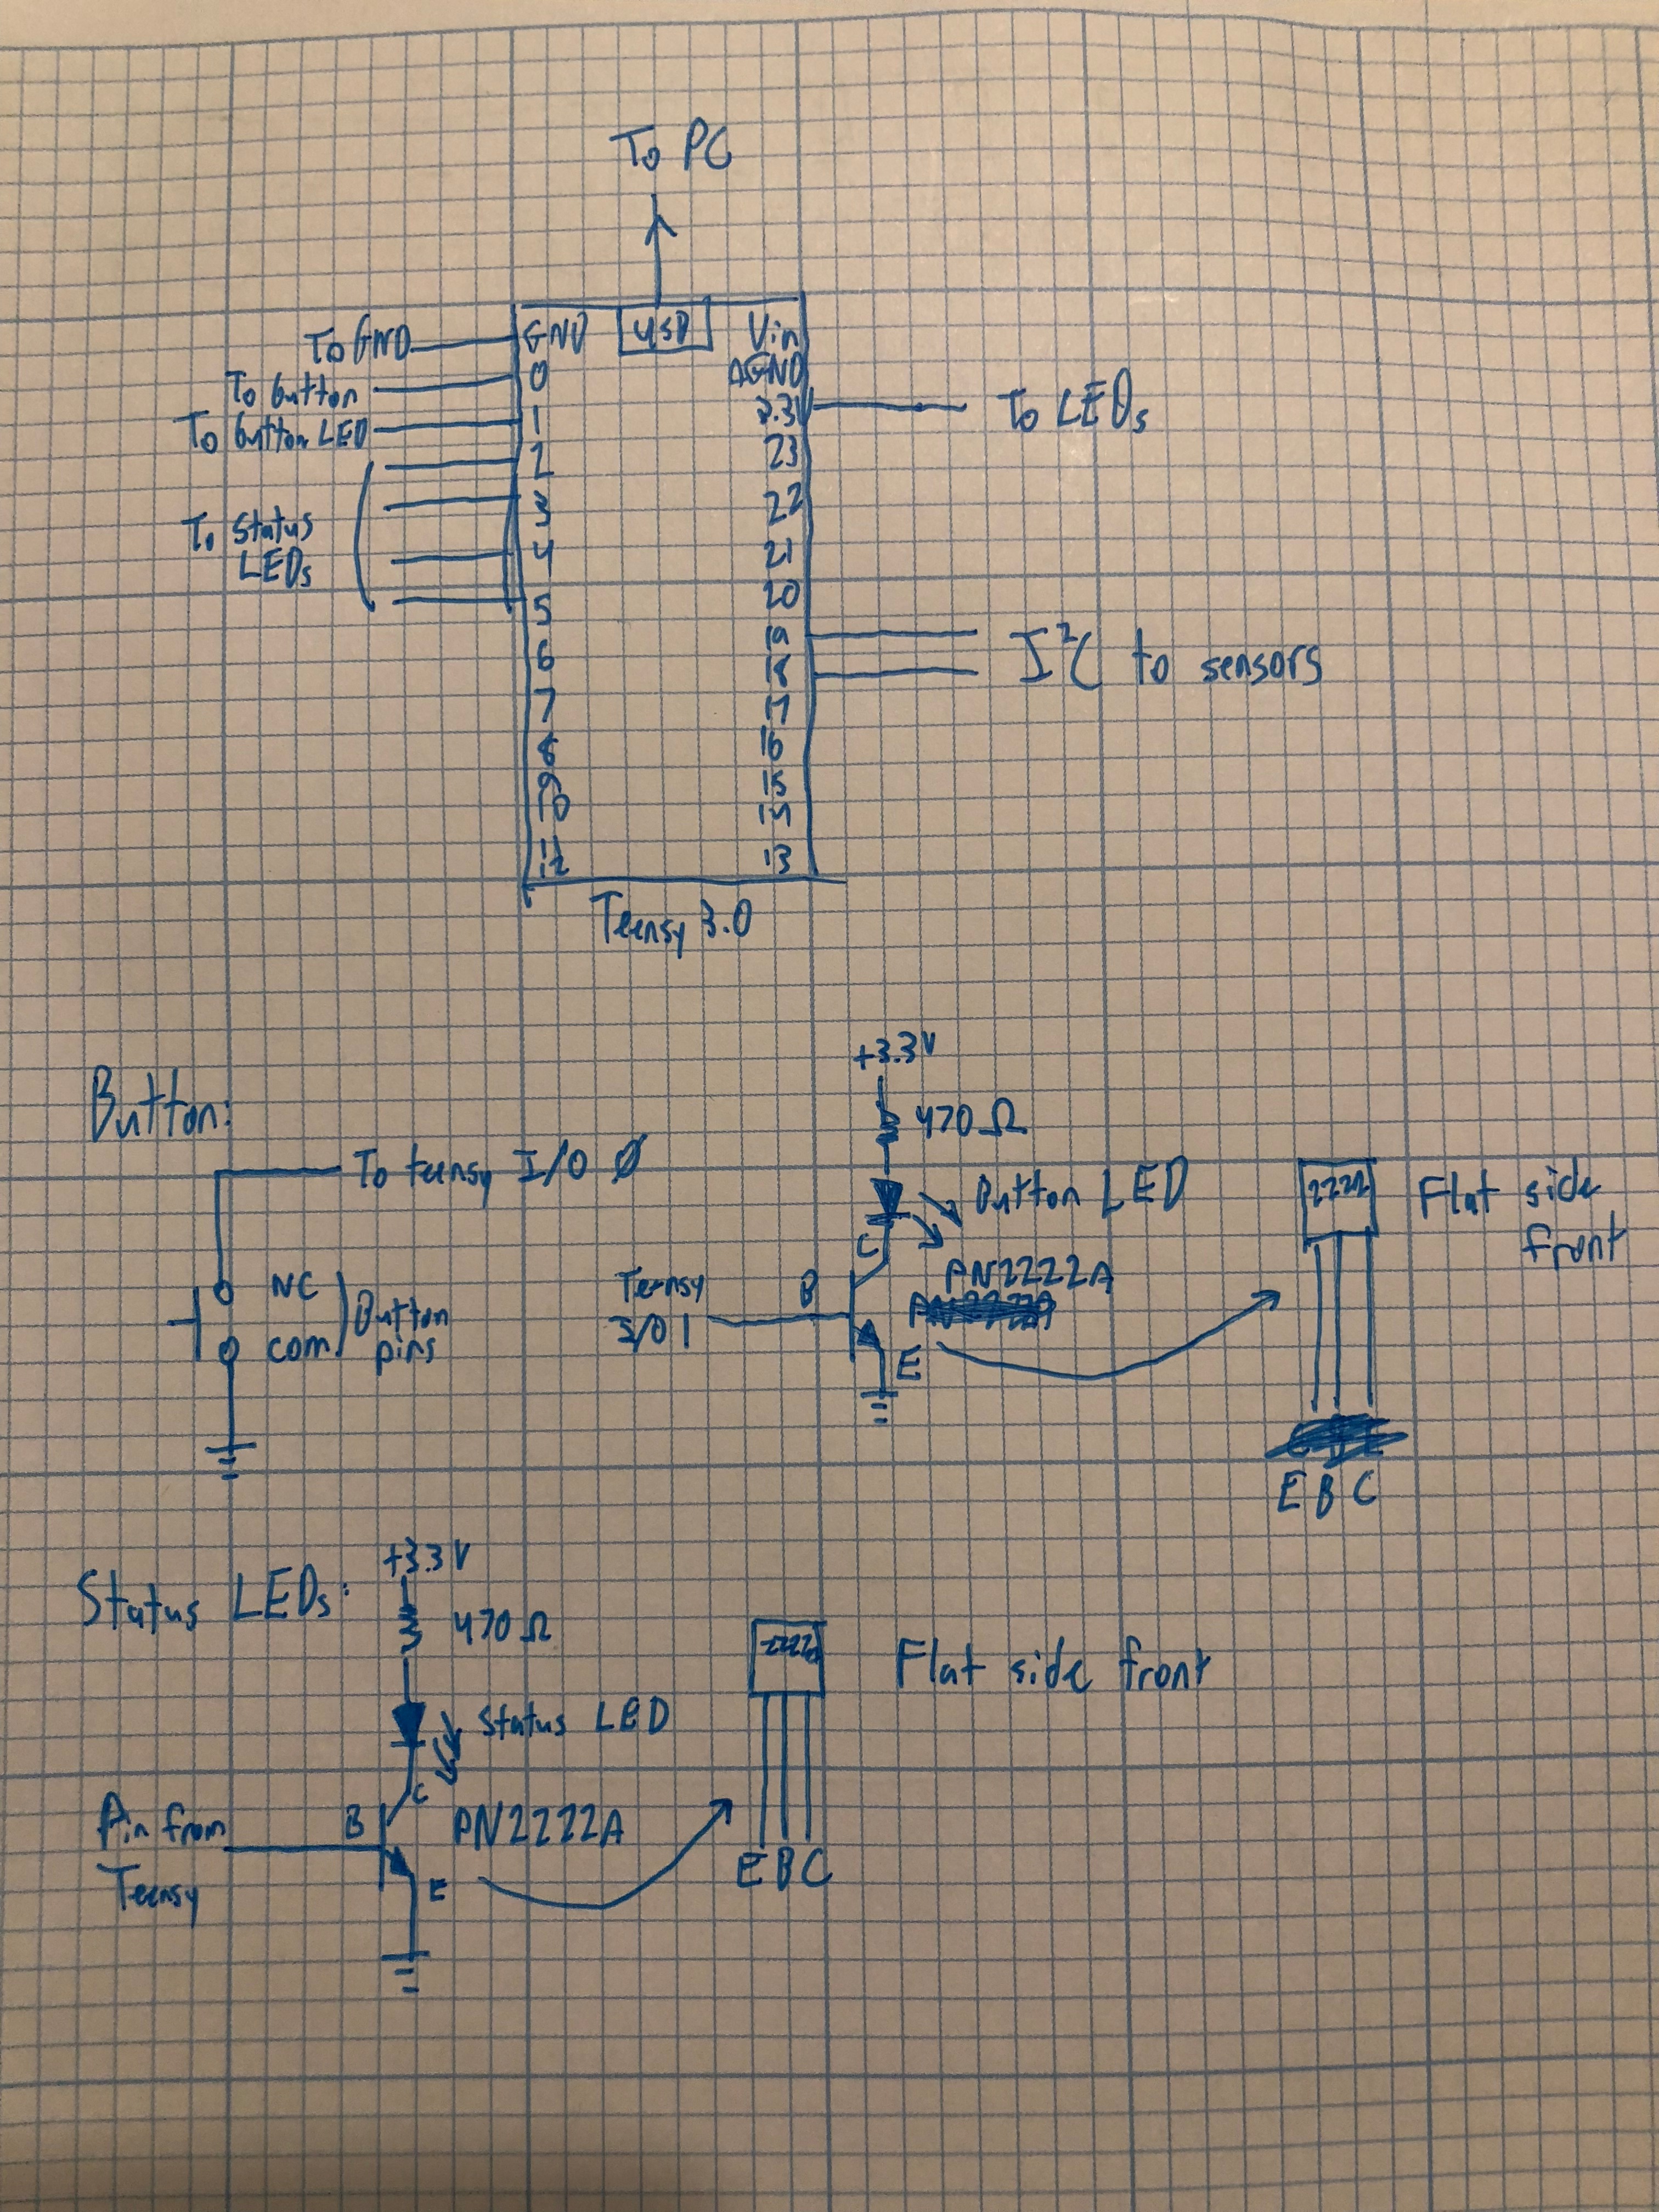 To PC
To GND GND USB Vin
To button 0 AGND
To button LED 1 3.3V To LEDs
2 23
To Status 3 22
LEDs 4 21
5 20
6 19 I²C to sensors
7 18
8 17
9 16
10 15
14
12 13
Teensy 3.0
Button:
To teensy I/O Ø
NC
com
Button
pins
+3.3V
470 Ω
Button LED
C
B
E
Teensy
I/O 1
PN2222A
2222
Flat side
front
E B C
Status LEDs:
+3.3V
470 Ω
Status LED
C
B
E
Pin from
Teensy
PN2222A
Flat side front
E B C